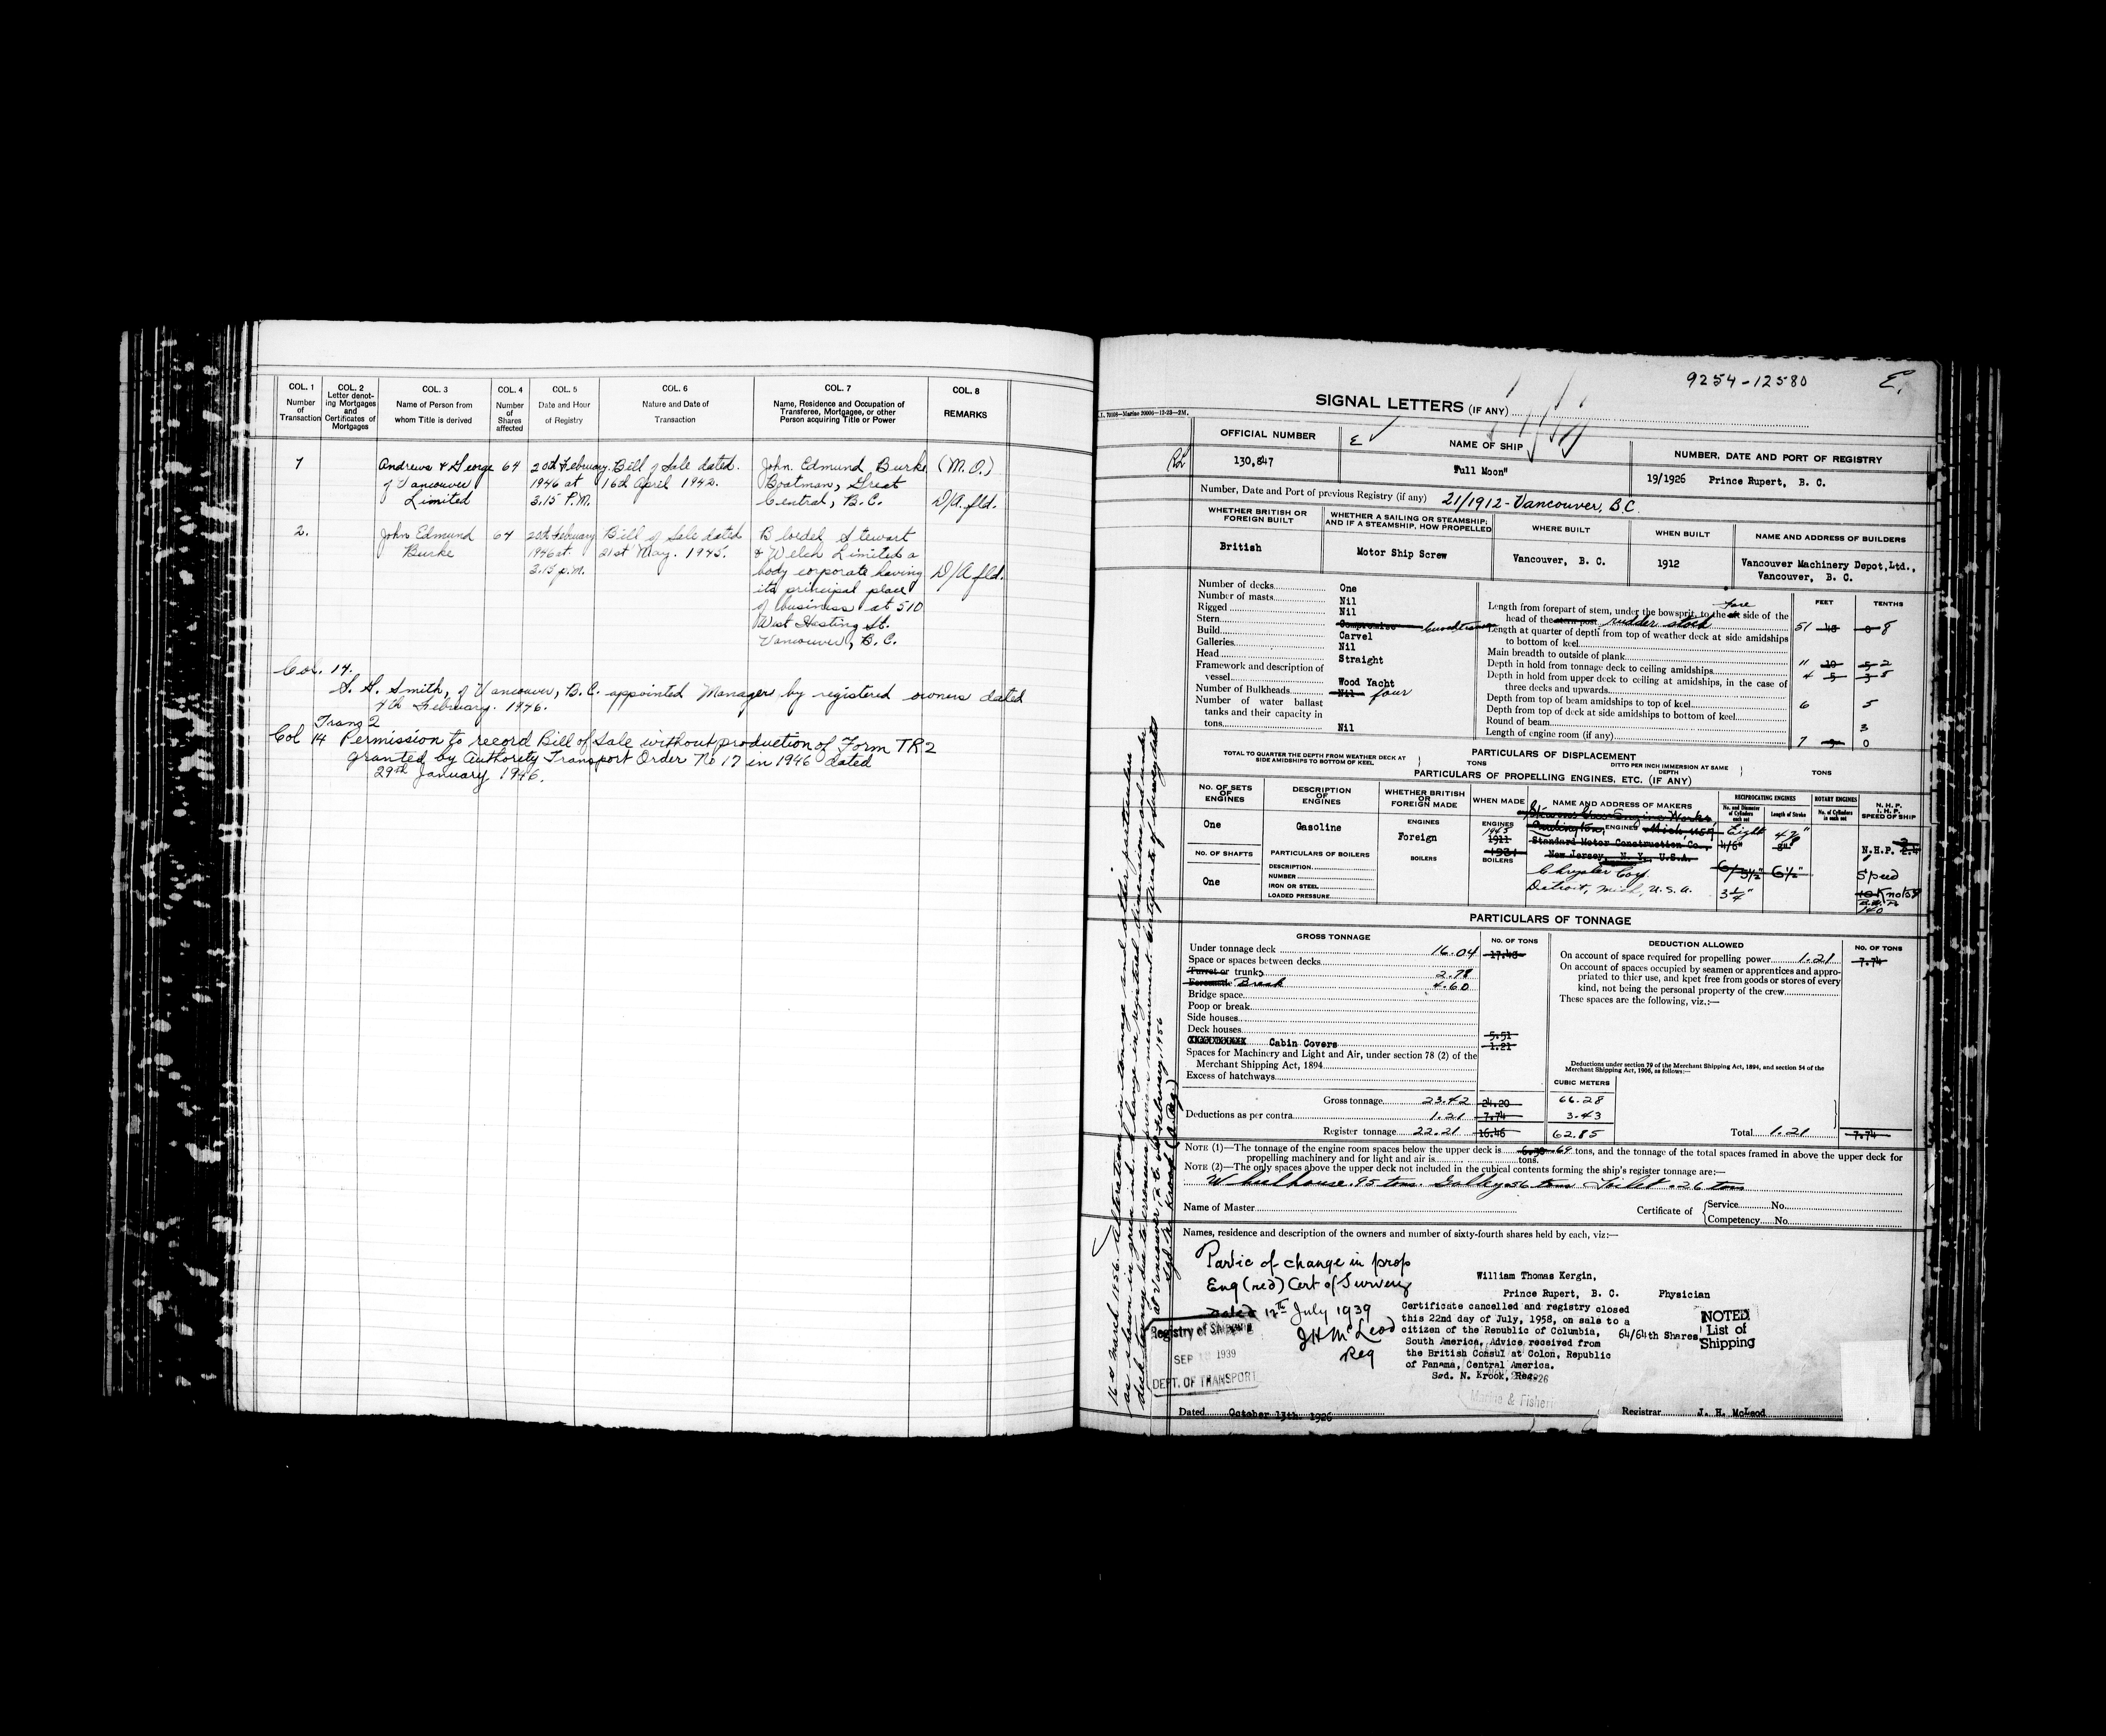 COL. 1 COL. 2 COL. 3 COL. 4 COL. 5 COL. 6 COL. 7 COL. 8
Number of Transaction
Letter denoting Mortgages and Certificates of Mortgages
Name of Person from whom Title is derived
Number of Shares affected
Date and Hour of Registry
Nature and Date of Transaction
Name, Residence and Occupation of Transferee, Mortgagee, or other Person acquiring Title or Power
REMARKS
1 Andrews & George 64 20th February Bill of Sale dated John Edmund Burke (M.O.)
of Vancouver 1946 at 16th April 1942. Boatman, Great
Limited 3.15 P.M. Central, B.C. D/A. fld.
2. John Edmund 64 20th February Bill of Sale dated Bloedel Stewart
Burke 1946 at 21st May. 1945. & Welch Limited a
3.15 p.m. body corporate having D/A fld.
its principal place
of business at 510
West Hasting St.
Vancouver, B.C.
Col. 14.
Smith, of Vancouver, B.C. appointed Manager by registered owners dated
4th February. 1946.
Trans 2
Col 14 Permission to record Bill of Sale without production of Form TR2
granted by Authority Transport Order No 17 in 1946 dated
29th January 1946.
9254-12580 E.
SIGNAL LETTERS (IF ANY)
OFFICIAL NUMBER
NAME OF SHIP
NUMBER, DATE AND PORT OF REGISTRY
130,847
E
Full Moon"
19/1926 Prince Rupert, B. C.
Number, Date and Port of previous Registry (if any) 21/1912 - Vancouver, B.C.
WHETHER BRITISH OR FOREIGN BUILT
WHETHER A SAILING OR STEAMSHIP; AND IF A STEAMSHIP, HOW PROPELLED
WHERE BUILT
WHEN BUILT
NAME AND ADDRESS OF BUILDERS
British
Motor Ship Screw
Vancouver, B. C.
1912
Vancouver Machinery Depot, Ltd.,
Vancouver, B. C.
Number of decks One
Number of masts Nil
Rigged Nil
Stern Compromise
Build Carvel
Galleries Nil
Head Straight
Framework and description of
vessel Wood Yacht
Number of Bulkheads Nil four
Number of water ballast
tanks and their capacity in
tons Nil
FEET TENTHS
Length from forepart of stem, under the bowsprit, to the aft fore side of the
head of the stern post rudder stock 51 48 0 8
Length at quarter of depth from top of weather deck at side amidships
to bottom of keel
Main breadth to outside of plank 11 10 5 2
Depth in hold from tonnage deck to ceiling amidships 4 5 3 5
Depth in hold from upper deck to ceiling at amidships, in the case of
three decks and upwards
Depth from top of beam amidships to top of keel 6 5
Depth from top of deck at side amidships to bottom of keel
Round of beam 3
Length of engine room (if any) 7 0
PARTICULARS OF DISPLACEMENT
TOTAL TO QUARTER THE DEPTH FROM WEATHER DECK AT
SIDE AMIDSHIPS TO BOTTOM OF KEEL
TONS
DITTO PER INCH IMMERSION AT SAME
DEPTH
TONS
PARTICULARS OF PROPELLING ENGINES, ETC. (IF ANY)
NO. OF SETS OF ENGINES
DESCRIPTION OF ENGINES
WHETHER BRITISH OR FOREIGN MADE
WHEN MADE
NAME AND ADDRESS OF MAKERS
RECIPROCATING ENGINES
No. and Diameter of Cylinders each set
Length of Stroke
ROTARY ENGINES
No. of Cylinders in each set
N.H.P.
I.H.P.
SPEED OF SHIP
One
Gasoline
ENGINES
Foreign
ENGINES
1945
1911
1931
ENGINES Mich, USA
Standard Motor Construction Co.,
New Jersey, N. Y., U.S.A.
Chrysler Corp
Detroit, Mich, U.S.A.
Eight
4/6"
8"
6/5½" 6½"
3¼"
N.H.P. 2.4
Speed
10 Knots
140
NO. OF SHAFTS
One
PARTICULARS OF BOILERS
DESCRIPTION
NUMBER
IRON OR STEEL
LOADED PRESSURE
BOILERS
BOILERS
PARTICULARS OF TONNAGE
GROSS TONNAGE
NO. OF TONS
DEDUCTION ALLOWED
NO. OF TONS
Under tonnage deck 16.04 17.48
Space or spaces between decks
Turret or trunks 2.78
Forecastle Break 4.60
Bridge space
Poop or break
Side houses
Deck houses 5.51
Cabin Covers 1.21
Spaces for Machinery and Light and Air, under section 78 (2) of the
Merchant Shipping Act, 1894
Excess of hatchways
Gross tonnage 23.42 24.20
Deductions as per contra 1.21 7.74
Register tonnage 22.21 16.46
On account of space required for propelling power 1.21 7.74
On account of spaces occupied by seamen or apprentices and appro-
priated to thier use, and kpet free from goods or stores of every
kind, not being the personal property of the crew
These spaces are the following, viz.:—
Deductions under section 79 of the Merchant Shipping Act, 1894, and section 54 of the
Merchant Shipping Act, 1906, as follows:—
CUBIC METERS
66.28
3.43
62.85
Total 1.21 7.74
NOTE (1)—The tonnage of the engine room spaces below the upper deck is .69 tons, and the tonnage of the total spaces framed in above the upper deck for
propelling machinery and for light and air is tons.
NOTE (2)—The only spaces above the upper deck not included in the cubical contents forming the ship's register tonnage are:—
Wheelhouse .95 tons. Galley .56 tons Toilet .26 tons
Name of Master
Certificate of
Service No.
Competency No.
Names, residence and description of the owners and number of sixty-fourth shares held by each, viz:—
Partic of change in prop
Eng (red) Cert of Survey
dated 12th July 1939
J H McLeod
Reg
Registry of Shipping
SEP 1939
DEPT. OF TRANSPORT
William Thomas Kergin,
Prince Rupert, B. C. Physician
Certificate cancelled and registry closed
this 22nd day of July, 1958, on sale to a
citizen of the Republic of Columbia,
South America. Advice received from
the British Consul at Colon, Republic
of Panama, Central America.
Sgd. N. Krook, Reg.
64/64th Shares
NOTED
List of
Shipping
Marine & Fisheri
Dated October 13th 1926
Registrar J. H. McLeod
16th March 1956. Alterations in tonnage and other particulars
as shown in green ink.
at Vancouver, B.C. February 1956
Sgd. N. Krook (A. Reg.)